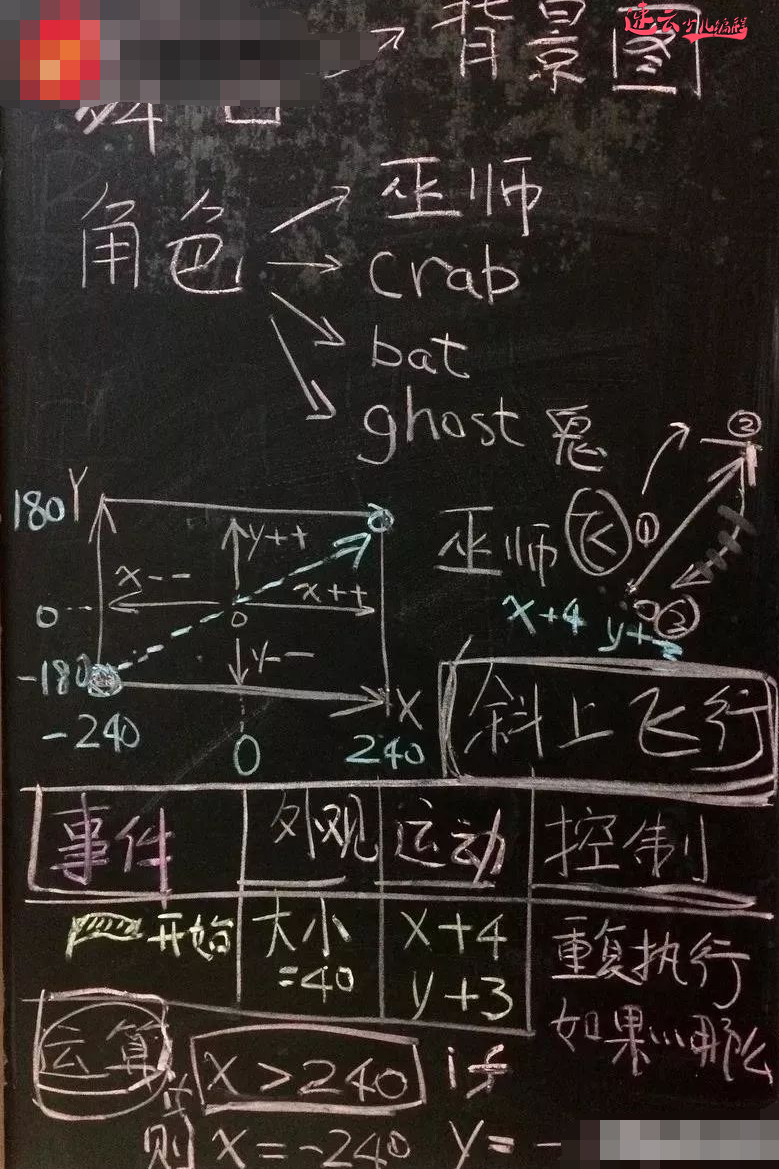 速云少儿编程
背景图
舞台
角色
巫师
crab
bat
ghost 鬼
②
180 Y
y++
x--
x++
0
0
y--
-180
-240
0
240
X
巫师 飞 ①
③
x+4 y+3
斜上飞行
事件 外观 运动 控制
开始 大小 =40 x+4 y+3 重复执行
如果...那么
运算 x>240 if
则 x=-240 y=-